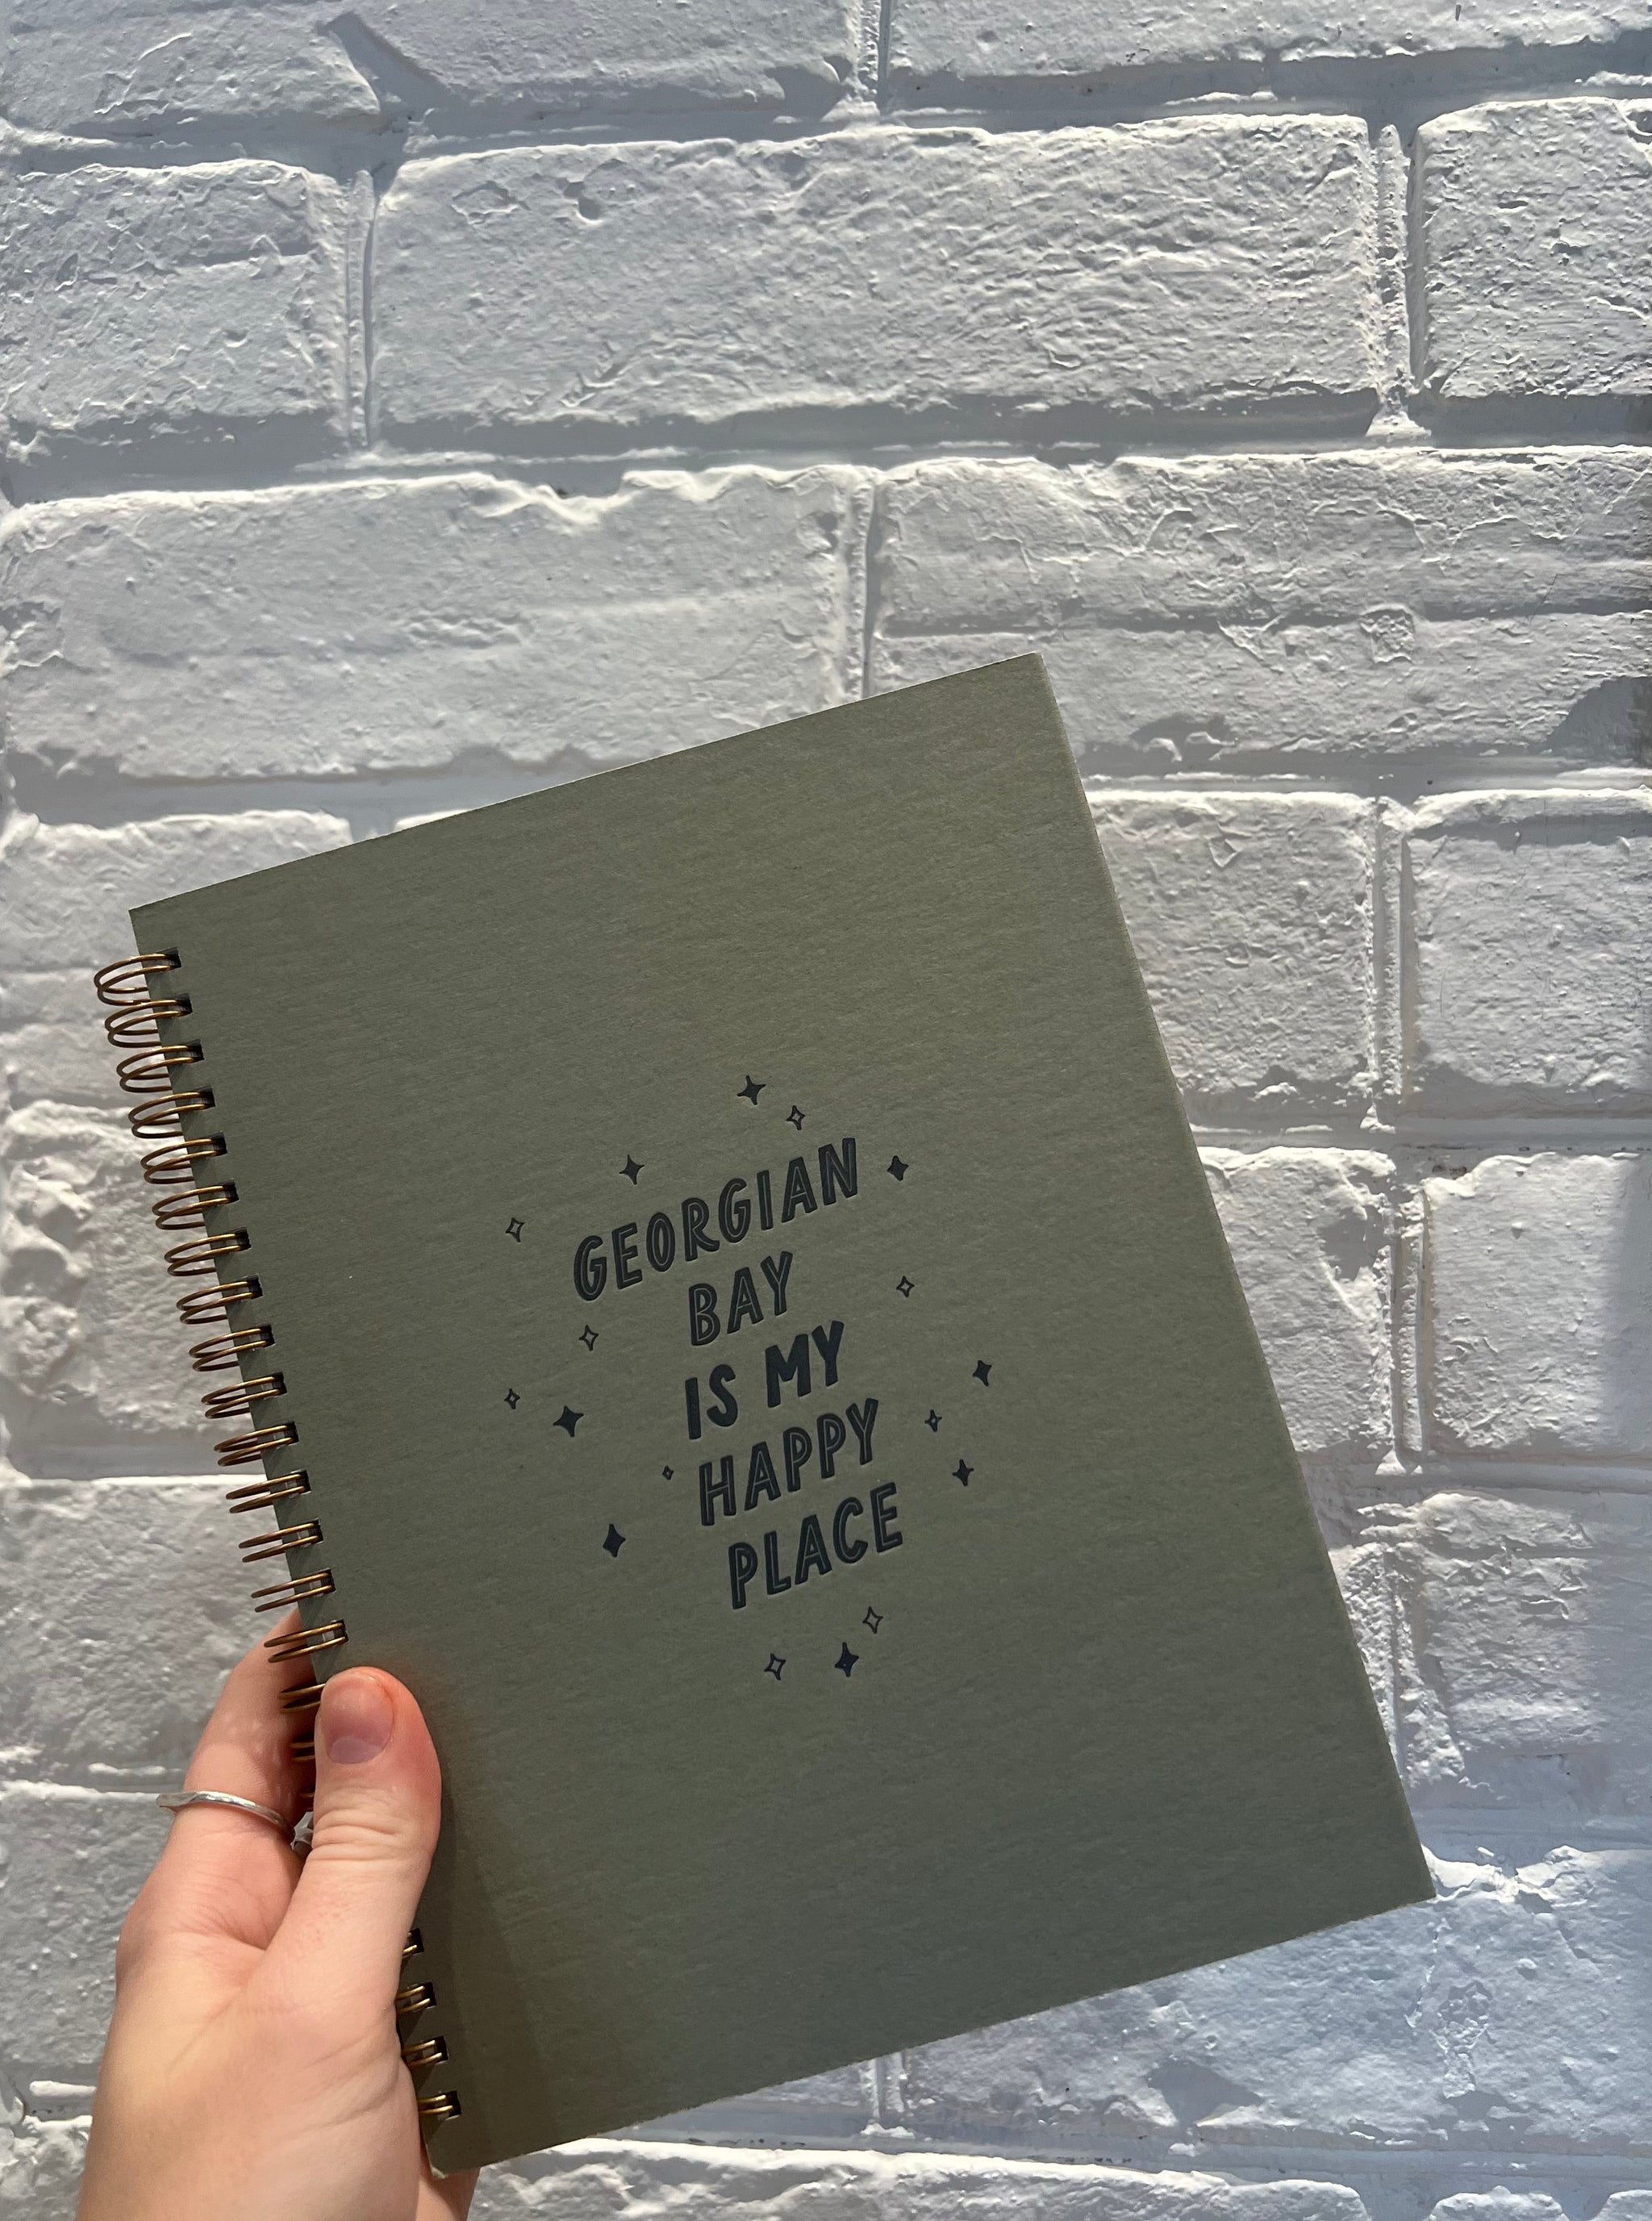 GEORGIAN
BAY
IS MY
HAPPY
PLACE